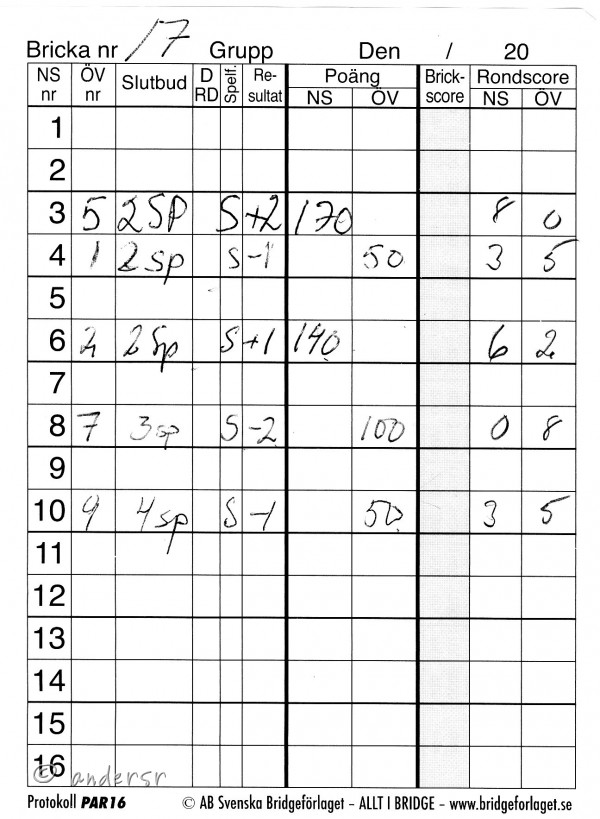 Bricka nr 17 Grupp Den / 20
NS nr ÖV nr Slutbud D RD Spelf. Re- sultat Poäng NS ÖV Brick- score Rondscore NS ÖV
1
2
3 5 2SP S +2 170 8 0
4 1 2sp S -1 50 3 5
5
6 2 2Sp S +1 140 6 2
7
8 7 3sp S -2 100 0 8
9
10 9 4sp S -1 50 3 5
11
12
13
14
15
16
© andersr
Protokoll PAR16 © AB Svenska Bridgeförlaget – ALLT I BRIDGE – www.bridgeforlaget.se